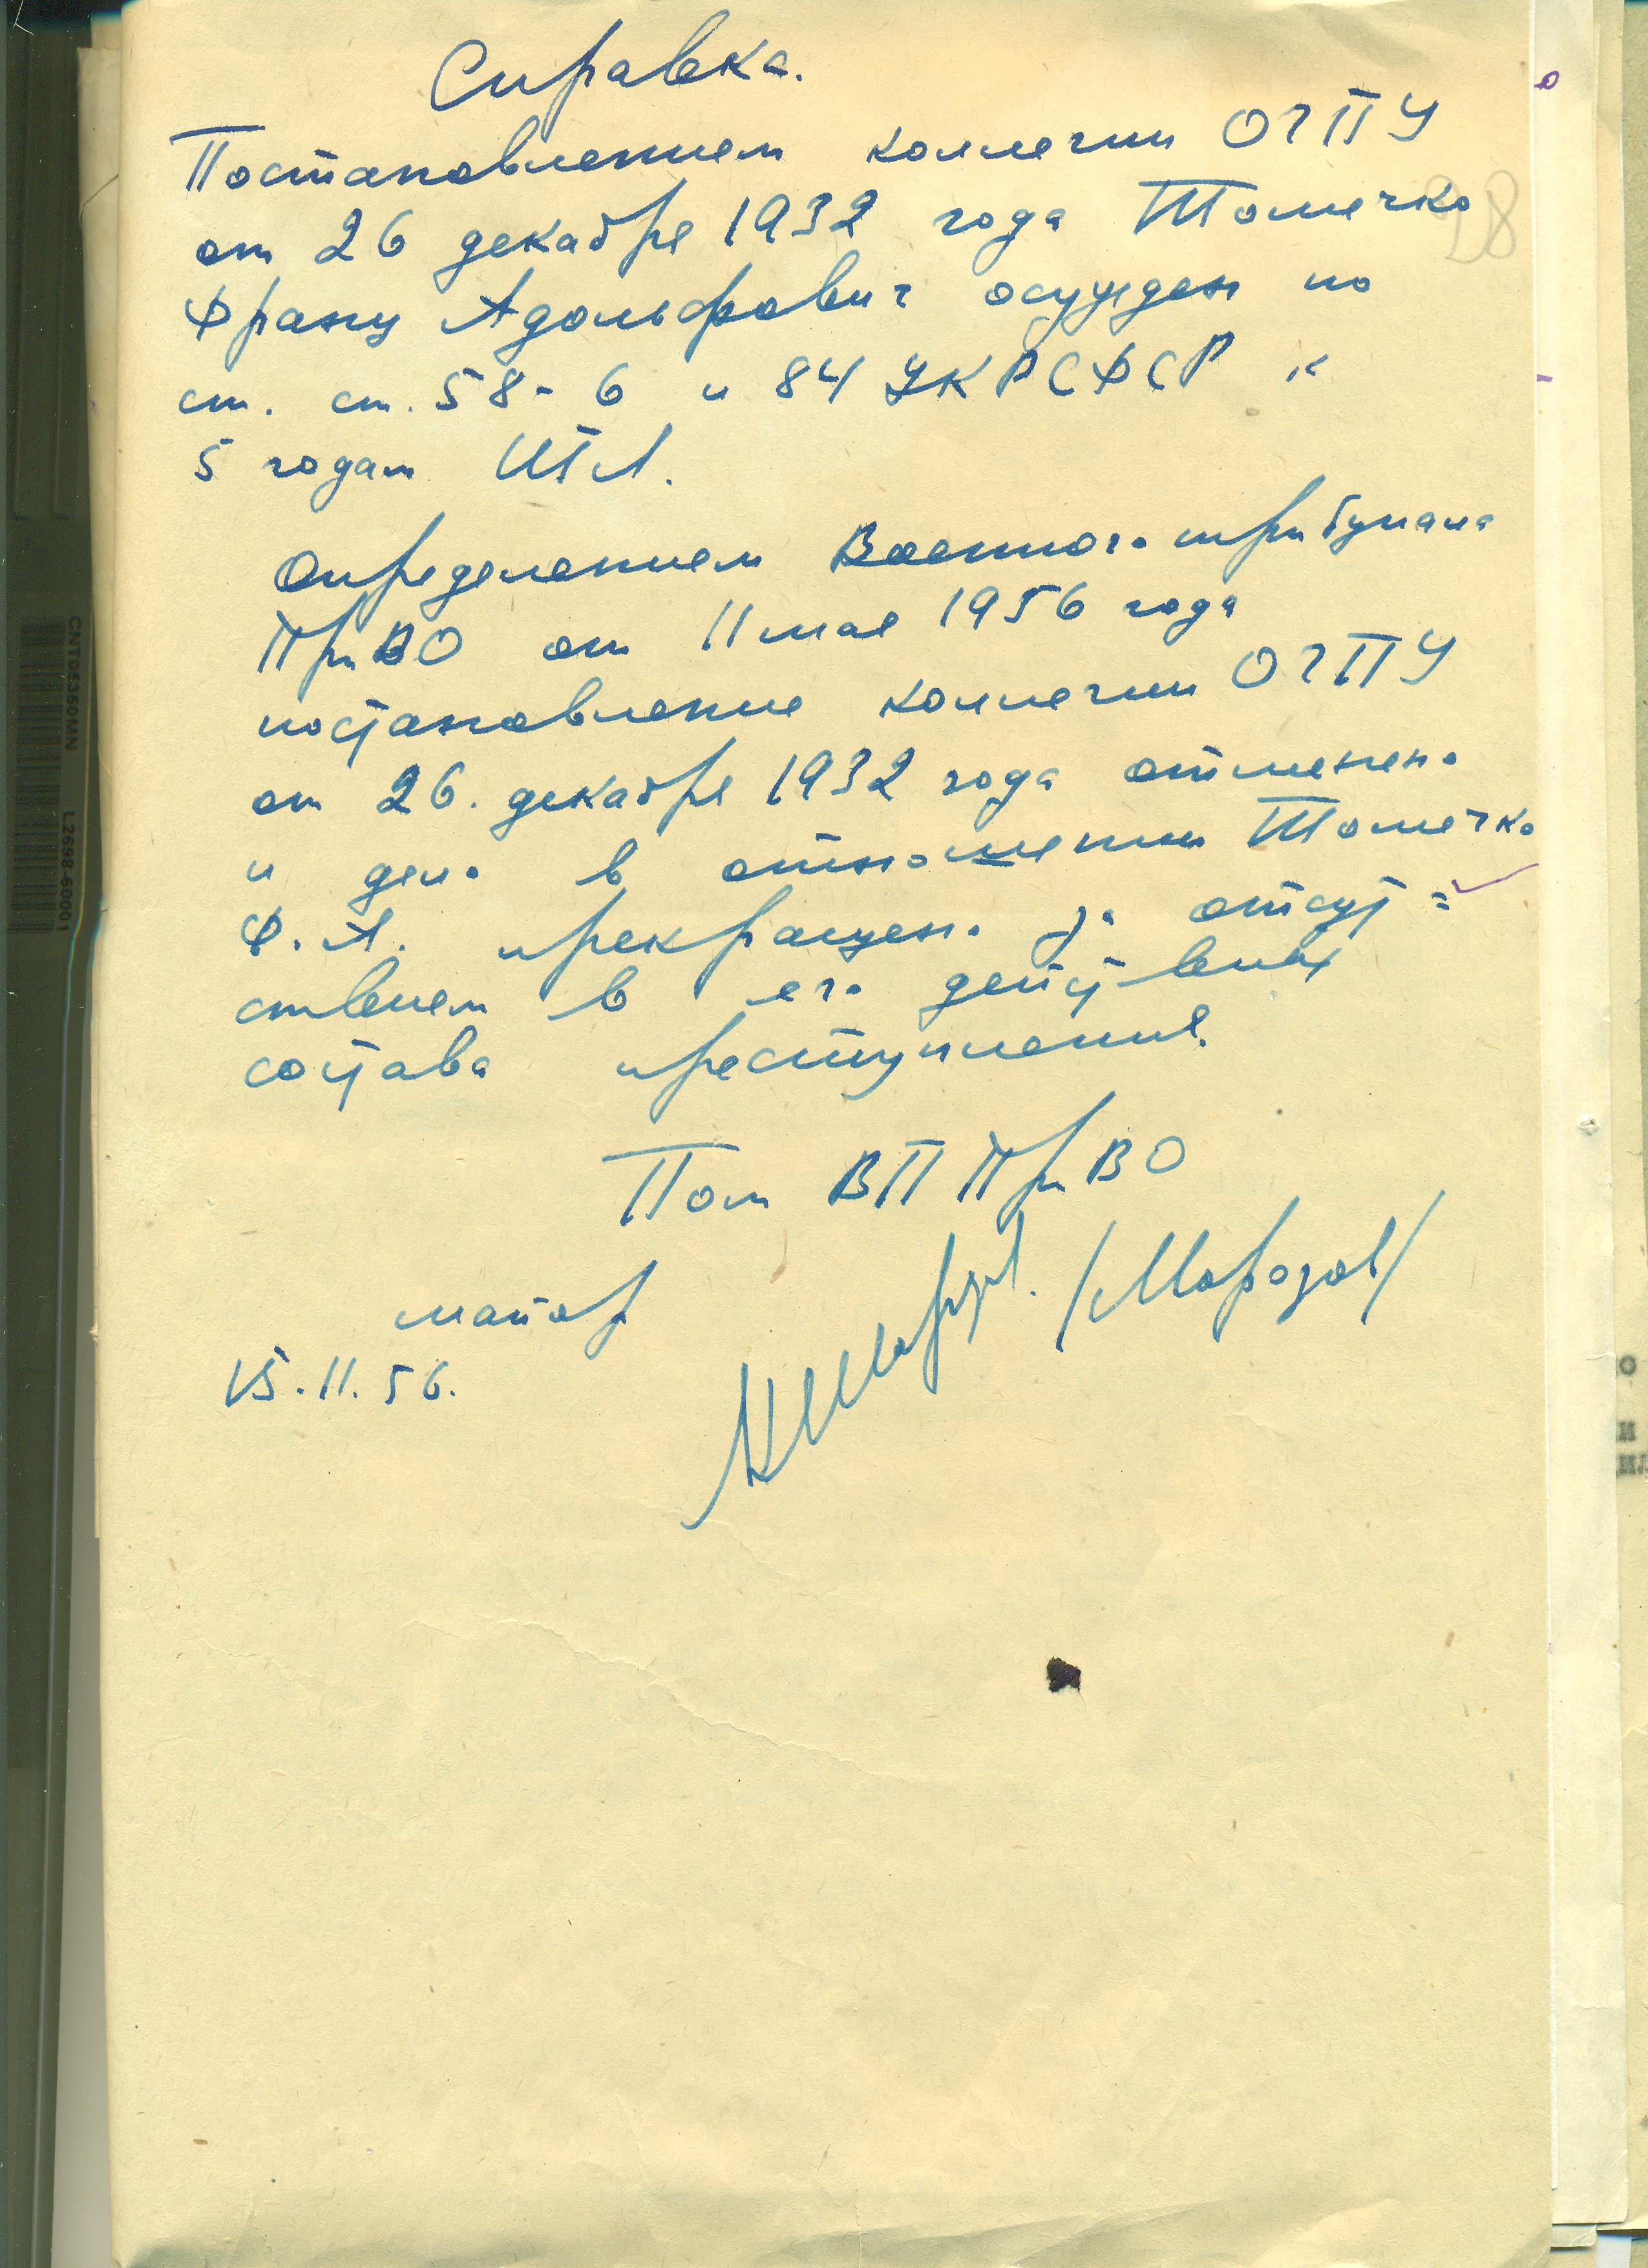 Справка.
Постановлением коллегии ОГПУ
от 26 декабря 1932 года Томечко
28
Франц Адольфович осужден по
ст. ст. 58-6 и 84 УК РСФСР к
5 годам ИТЛ.
Определением Военного трибунала
ПриВО от 11 мая 1956 года
постановление коллегии ОГПУ
от 26. декабря 1932 года отменено
и дело в отношении Томечко
Ф. А. прекращено за отсут=
ствием в его действиях
состава преступления.
Пом ВП ПриВО
майор /Морозов/
15.11.56.
CNT05350MN L2698-60001